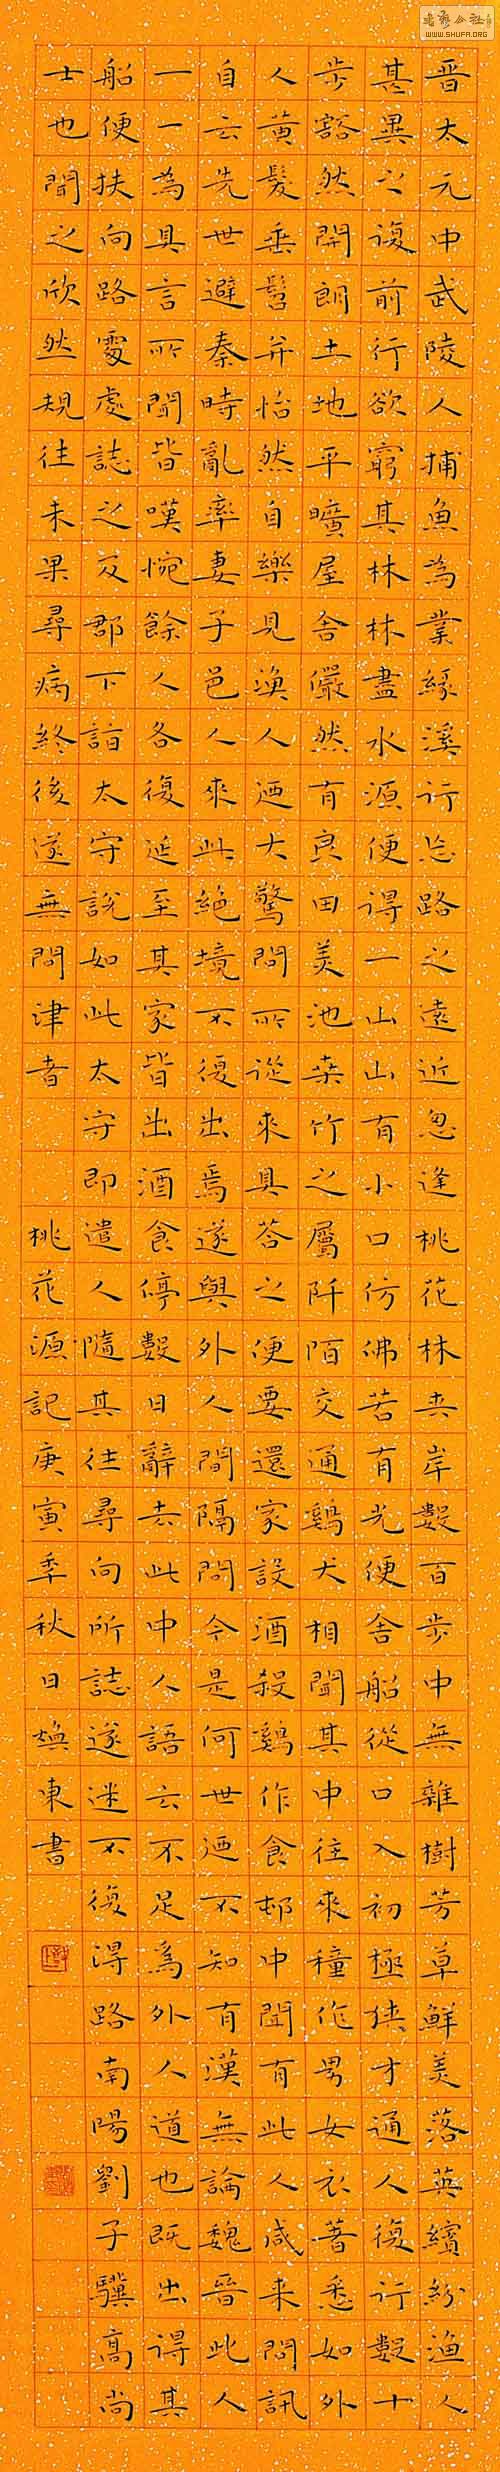 晉太元中武陵人捕魚為業緣溪行忘路之遠近忽逢桃花林夹岸數百步中無雜樹芳草鮮美落英繽紛漁人
甚異之復前行欲窮其林林盡水源便得一山山有小口仿佛若有光便舍船從口入初極狹才通人復行數十
步豁然開朗土地平曠屋舍儼然有良田美池桑竹之屬阡陌交通鷄犬相聞其中往來種作男女衣著悉如外
人黃髮垂髫并怡然自樂見漁人迺大驚問所從來具答之便要還家設酒殺鷄作食邨中聞有此人咸來問訊
自云先世避秦時亂率妻子邑人來此絶境不復出焉遂與外人間隔問今是何世迺不知有漢無論魏晉此人
一一為具言所聞皆嘆惋餘人各復延至其家皆出酒食停數日辭去此中人語云不足為外人道也既出得其
船便扶向路處處誌之及郡下詣太守說如此太守即遣人隨其往尋向所誌遂迷不復得路南陽劉子驥高尚
士也聞之欣然規往未果尋病終後遂無問津者 桃花源記庚寅年秋日煥東書
書藝公社
WWW.SHUFA.ORG